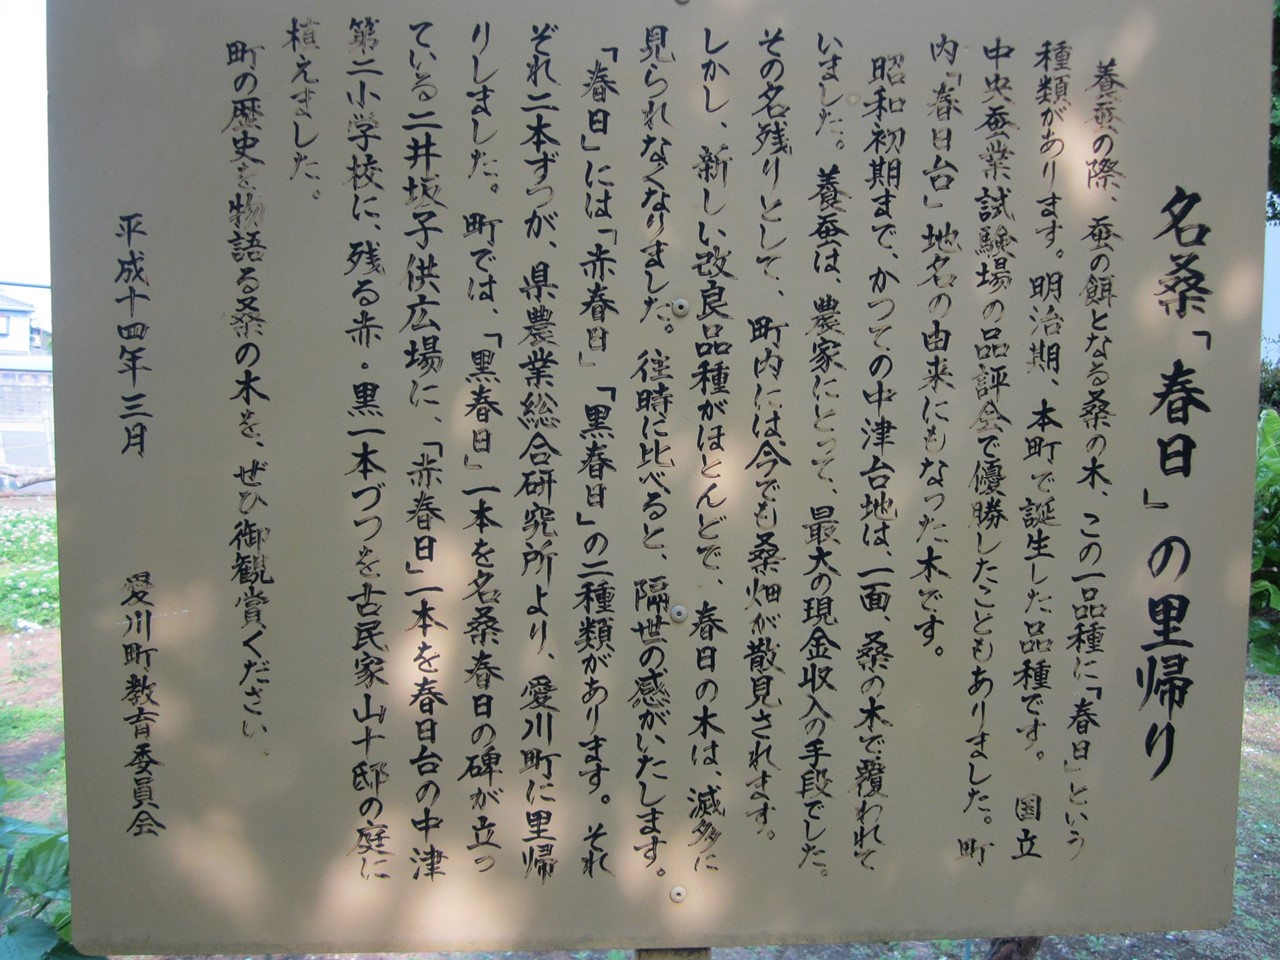 名桑「春日」の里帰り
養蚕の際、蚕の餌となる桑の木、この一品種に「春日」という
種類があります。明治期、本町で誕生した品種です。国立
中央蚕業試験場の品評会で優勝したこともありました。町
内「春日台」地名の由来にもなった木です。
昭和初期まで、かつての中津台地は、一面、桑の木で覆われて
いました。養蚕は、農家にとって、最大の現金収入の手段でした。
その名残りとして、町内には今でも桑畑が散見されます。
しかし、新しい改良品種がほとんどで、春日の木は、滅多に
見られなくなりました。往時に比べると、隔世の感がいたします。
「春日」には「赤春日」「黒春日」の二種類があります。それ
ぞれ二本ずつが、県農業総合研究所より、愛川町に里帰
りしました。町では、「黒春日」一本を名桑春日の碑が立っ
ている二井坂子供広場に、「赤春日」一本を春日台の中津
第二小学校に、残る赤・黒一本づつを古民家山十邸の庭に
植えました。
町の歴史を物語る桑の木を、ぜひ御観賞ください。
平成十四年三月 愛川町教育委員会